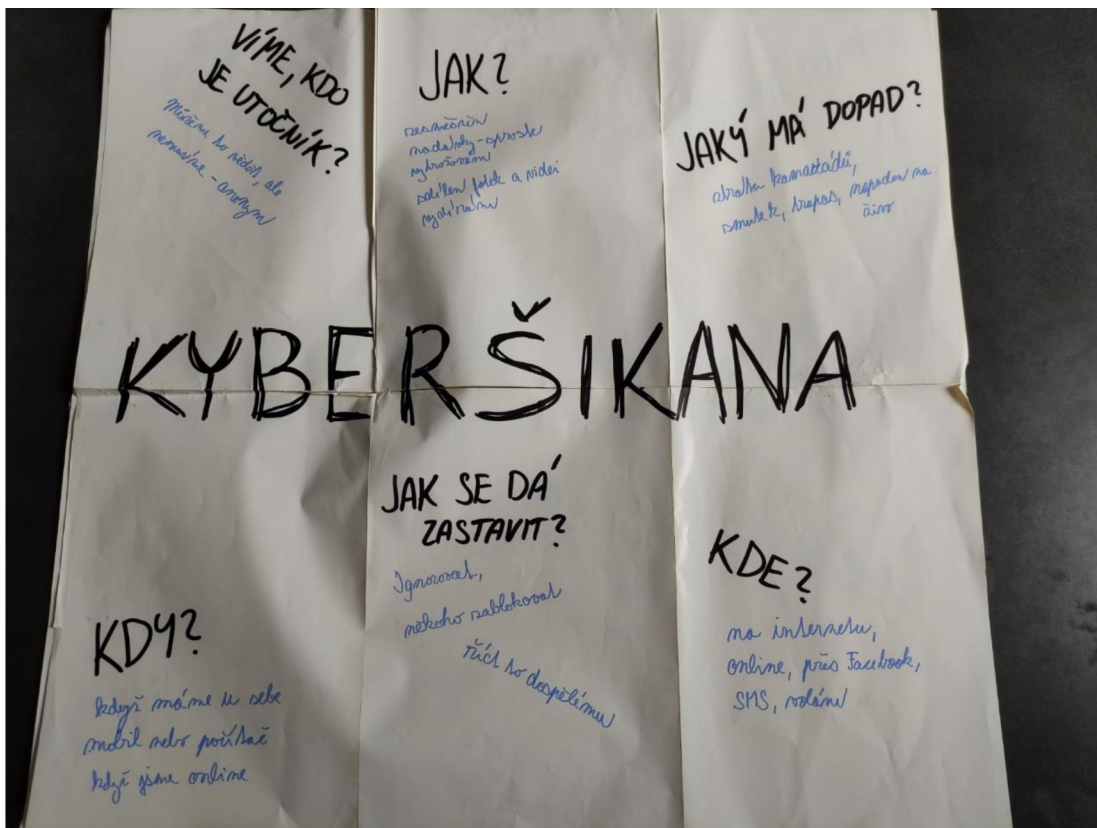 VÍME, KDO
JE UTOČNÍK?
můžeme to vědět, ale
nemusíme - anonym
JAK?
zesměšnění
nadávky - sprosté
vyhrožování
sdílen fotek a videí
vydírání
JAKÝ MÁ DOPAD?
ztráta kamarádů,
smutek, trapas, napaden na
KYBERŠIKANA
KDY?
když máme u sebe
mobil nebo počítač
když jsme online
JAK SE DÁ
ZASTAVIT?
Ignorovat,
někoho zablokovat
říct to dospělému
KDE?
na internetu,
online, přes Facebook,
SMS, volání